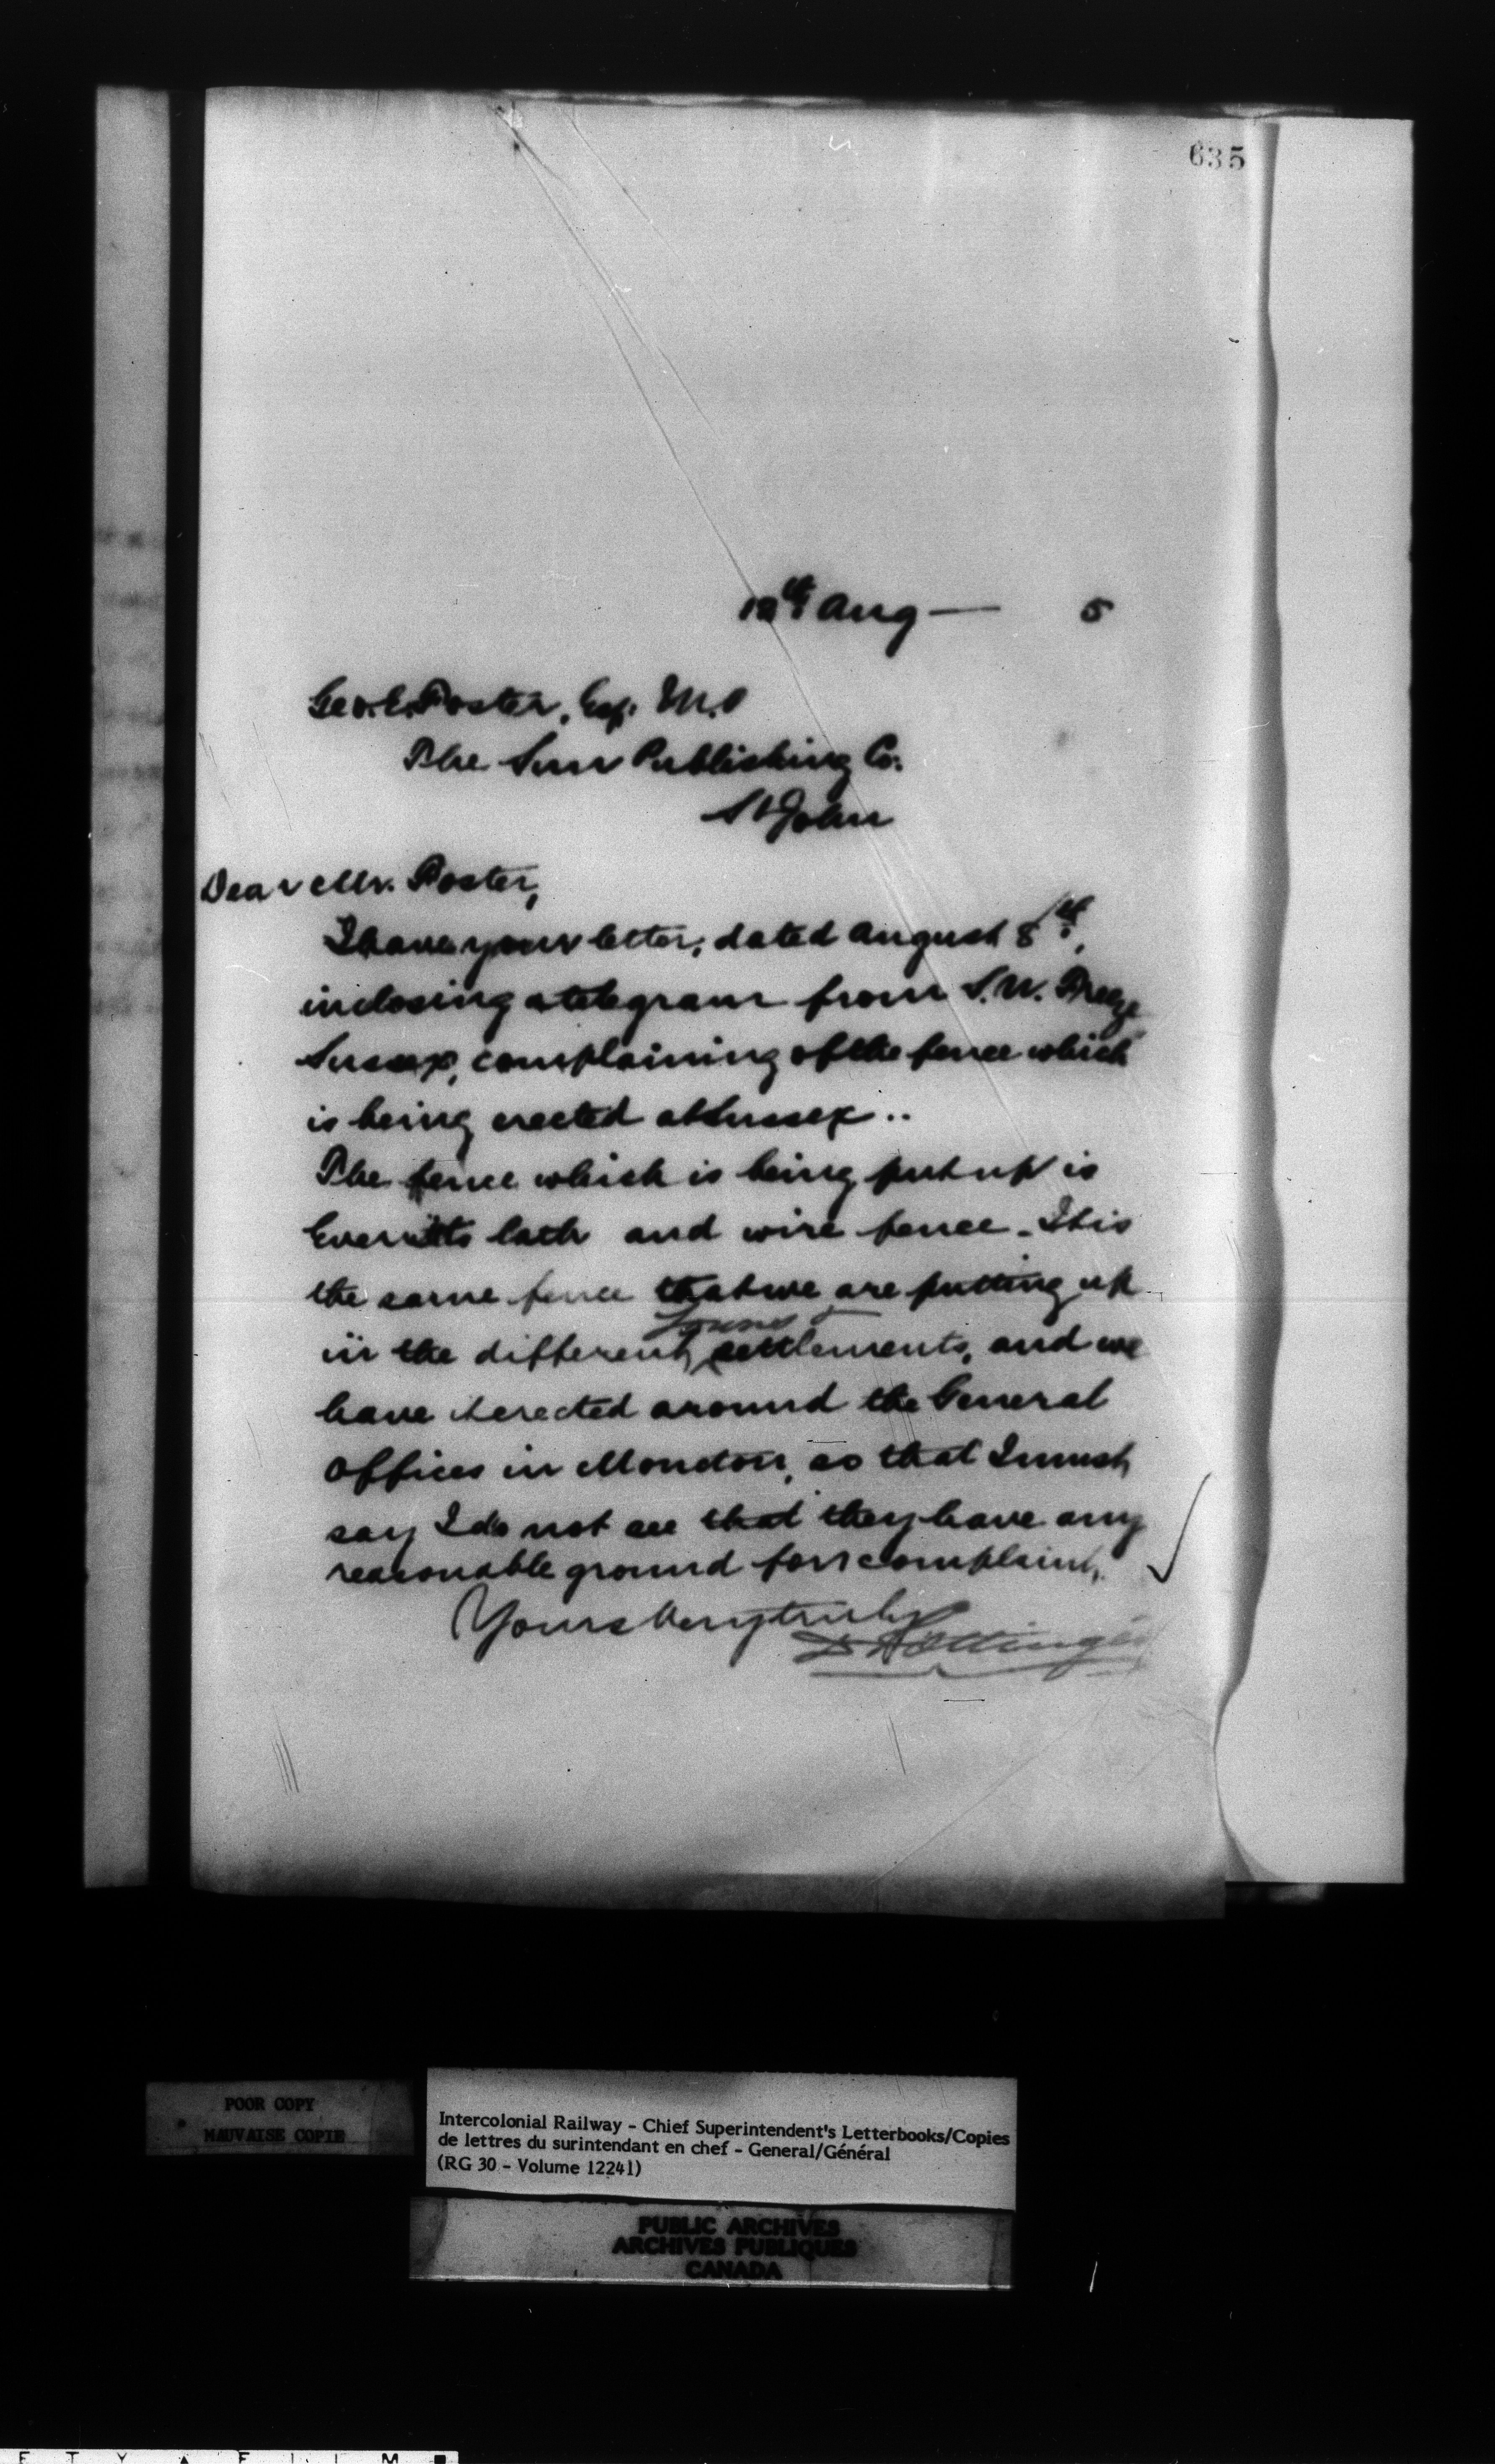 635
12th Aug — 5
Geo. E. Foster, Esq. M.P
The Sun Publishing Co.
St John
Dear Mr. Foster,
I have your letter, dated August 8th,
inclosing a telegram from S. W. Freeze
Sussex, complaining of the fence which
is being erected at Sussex..
The fence which is being put up is
Everitts lath and wire fence. It is
the same fence that we are putting up
towns &
in the different settlements, and we
have it erected around the General
Offices in Moncton, so that I must
say I do not see that they have any
reasonable ground for complaint.
Yours very truly
D Pottinger
POOR COPY
MAUVAISE COPIE
Intercolonial Railway - Chief Superintendent's Letterbooks/Copies
de lettres du surintendant en chef - General/Général
(RG 30 - Volume 12241)
PUBLIC ARCHIVES
ARCHIVES PUBLIQUES
CANADA